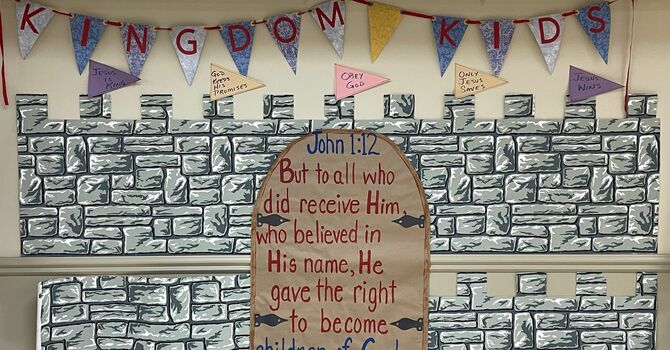 KINGDOM KIDS
JESUS
IS
KING
GOD
KEEPS
HIS
PROMISES
OBEY
GOD
ONLY
JESUS
SAVES
JESUS
WINS
John 1:12
But to all who
did receive Him,
who believed in
His name, He
gave the right
to become
children of God